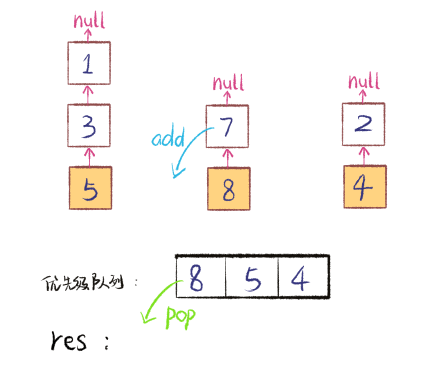 null
1
3
5
null
7
add
8
null
2
4
优先级队列：
8 5 4
pop
res :